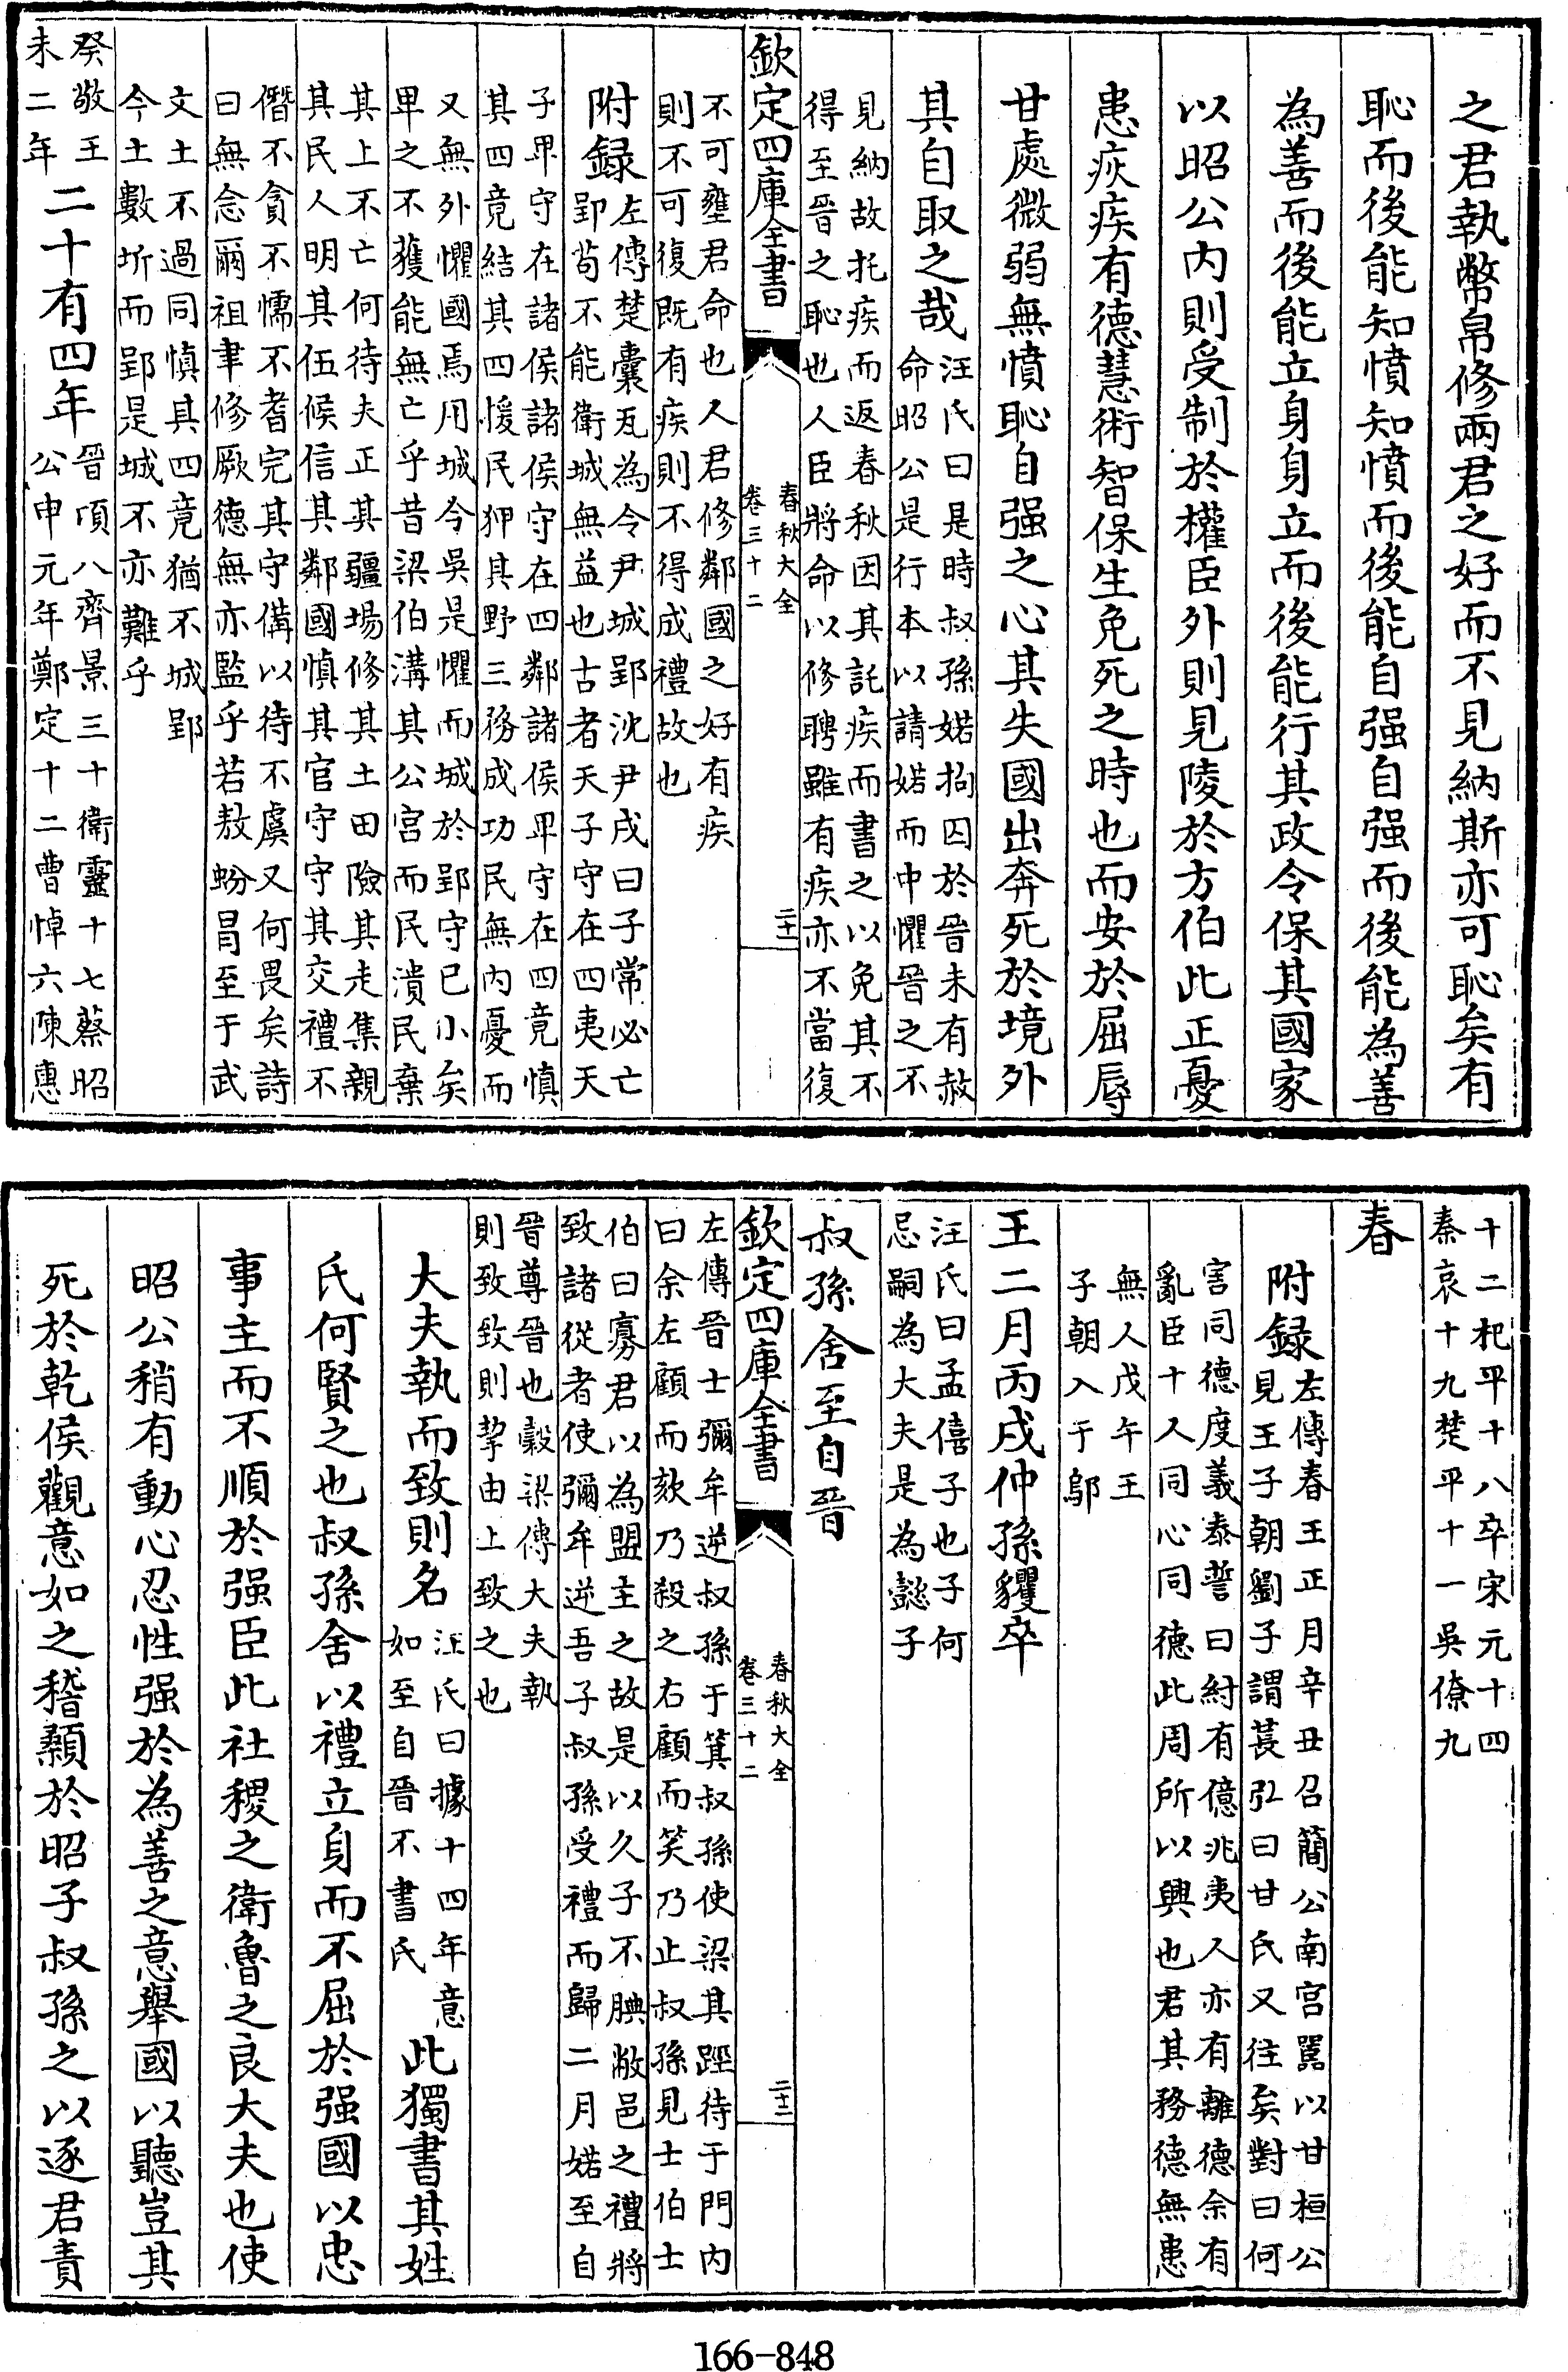 之君執幣帛修兩君之好而不見納斯亦可恥矣有
恥而後能知憤知憤而後能自强自强而後能為善
為善而後能立身身立而後能行其政令保其國家
以昭公内則受制於權臣外則見陵於方伯此正憂
患疢疾有德慧術智保生免死之時也而安於屈辱
甘處微弱無憤恥自强之心其失國出奔死於境外
其自取之哉
汪氏曰是時叔孫婼拘囚於晉未有赦
命昭公是行本以請婼而中懼晉之不
見納故托疾而返春秋因其託疾而書之以免其不
得至晉之恥也人臣將命以修聘雖有疾亦不當復
欽定四庫全書
春秋大全
卷三十二
二十一
不可壅君命也人君修鄰國之好有疾
則不可復既有疾則不得成禮故也
附録
左傳楚囊瓦為令尹城郢沈尹戌曰子常必亡
郢苟不能衛城無益也古者天子守在四夷天
子卑守在諸侯諸侯守在四鄰諸侯卑守在四竟慎
其四竟結其四援民狎其野三務成功民無内憂而
又無外懼國焉用城今吳是懼而城於郢守已小矣
卑之不獲能無亡乎昔梁伯溝其公宫而民潰民棄
其上不亡何待夫正其疆埸修其土田險其走集親
其民人明其伍候信其鄰國慎其官守守其交禮不
僭不貪不懦不耆完其守備以待不虞又何畏矣詩
曰無念爾祖聿修厥德無亦監乎若敖蚡冒至于武
文土不過同慎其四竟猶不城郢
今土數圻而郢是城不亦難乎
癸敬王
未二年
二十有四年
晉頃八齊景三十衛靈十七蔡昭
公申元年鄭定十二曹悼六陳惠
十二杞平十八卒宋元十四
秦哀十九楚平十一吳僚九
春
附録
左傳春王正月辛丑召簡公南宫嚚以甘桓公
見王子朝劉子謂萇弘曰甘氏又往矣對曰何
害同德度義泰誓曰紂有億兆夷人亦有離德余有
亂臣十人同心同德此周所以興也君其務德無患
無人戊午王
子朝入于鄔
王二月丙戌仲孫貜卒
汪氏曰孟僖子也子何
忌嗣為大夫是為懿子
叔孫舍至自晉
欽定四庫全書
春秋大全
卷三十二
二十二
左傳晉士彌牟逆叔孫于箕叔孫使梁其踁待于門内
曰余左顧而欬乃殺之右顧而笑乃止叔孫見士伯士
伯曰寡君以為盟主之故是以久子不腆敝邑之禮將
致諸從者使彌牟逆吾子叔孫受禮而歸二月婼至自
晉尊晉也穀梁傳大夫執
則致致則挈由上致之也
大夫執而致則名
汪氏曰據十四年意
如至自晉不書氏
此獨書其姓
氏何賢之也叔孫舍以禮立身而不屈於强國以忠
事主而不順於强臣此社稷之衛魯之良大夫也使
昭公稍有動心忍性强於為善之意舉國以聽豈其
死於乾侯觀意如之稽顙於昭子叔孫之以逐君責
166-848